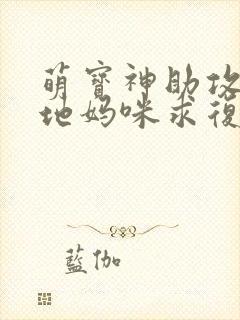 萌寶神助攻
地媽咪求復
藍伽